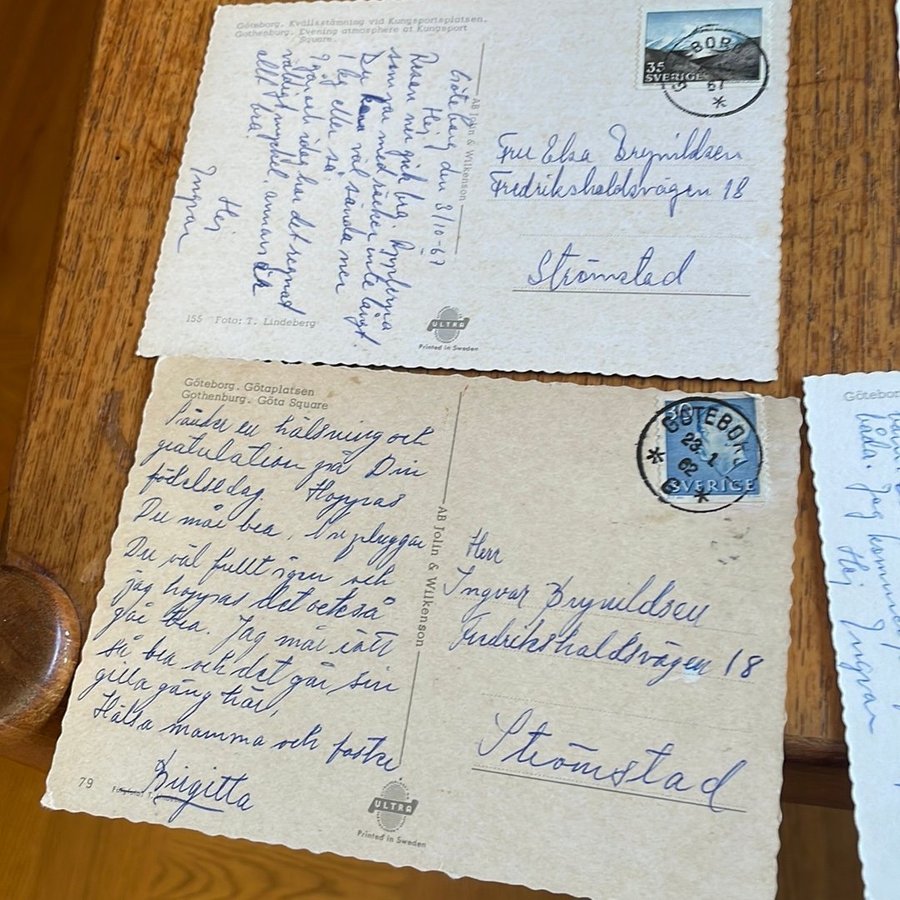 Göteborg. Kvällsstämning vid Kungsportsplatsen.
Gothenburg. Evening atmosphere at Kungsport
Square.
Göteborg den 8/10-67
Hej
Resan ner gick bra.
som jag med räcker inte långt.
Du kan väl sända ner
1 kg eller så.
Igår och idag har det regnat
väldigt mycket, annars är
allt bra.
Hej
Ingvar
155 Foto: T. Lindeberg
AB Jolin & Wilkenson
ULTRA
Printed in Sweden
35
SVERIGE
67
Fru Elsa Brynildsen
Fredrikshaldsvägen 18
Strömstad
Göteborg. Götaplatsen
Gothenburg. Göta Square
Sänder en hälsning och
gratulation på Din
födelsedag. Hoppas
Du mår bra. Nu pluggar
Du väl fullt igen och
jag hoppas det också
går bra. Jag mår rätt
så bra och det går sin
gilla gång här.
Hälsa mamma och faster
Birgitta
79
AB Jolin & Wilkenson
ULTRA
Printed in Sweden
GÖTEBORG
23. 1
62
SVERIGE
Herr
Ingvar Brynildsen
Fredrikshaldsvägen 18
Strömstad
båda. Jag kommer
Hej
Ingvar